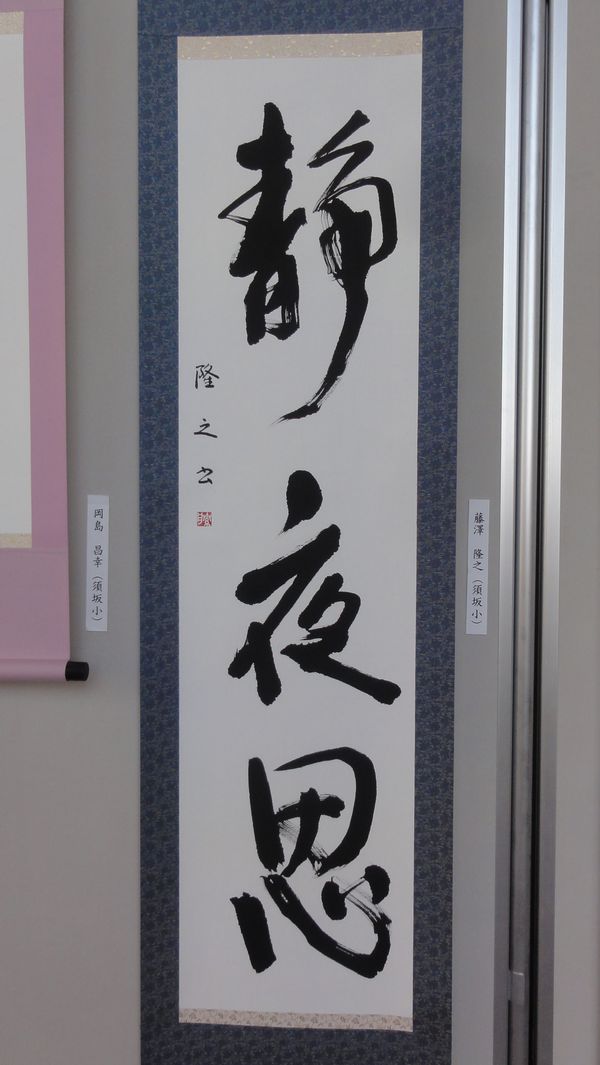 静夜思
隆之書
藤澤 隆之(須坂小)
岡島 昌幸(須坂小)